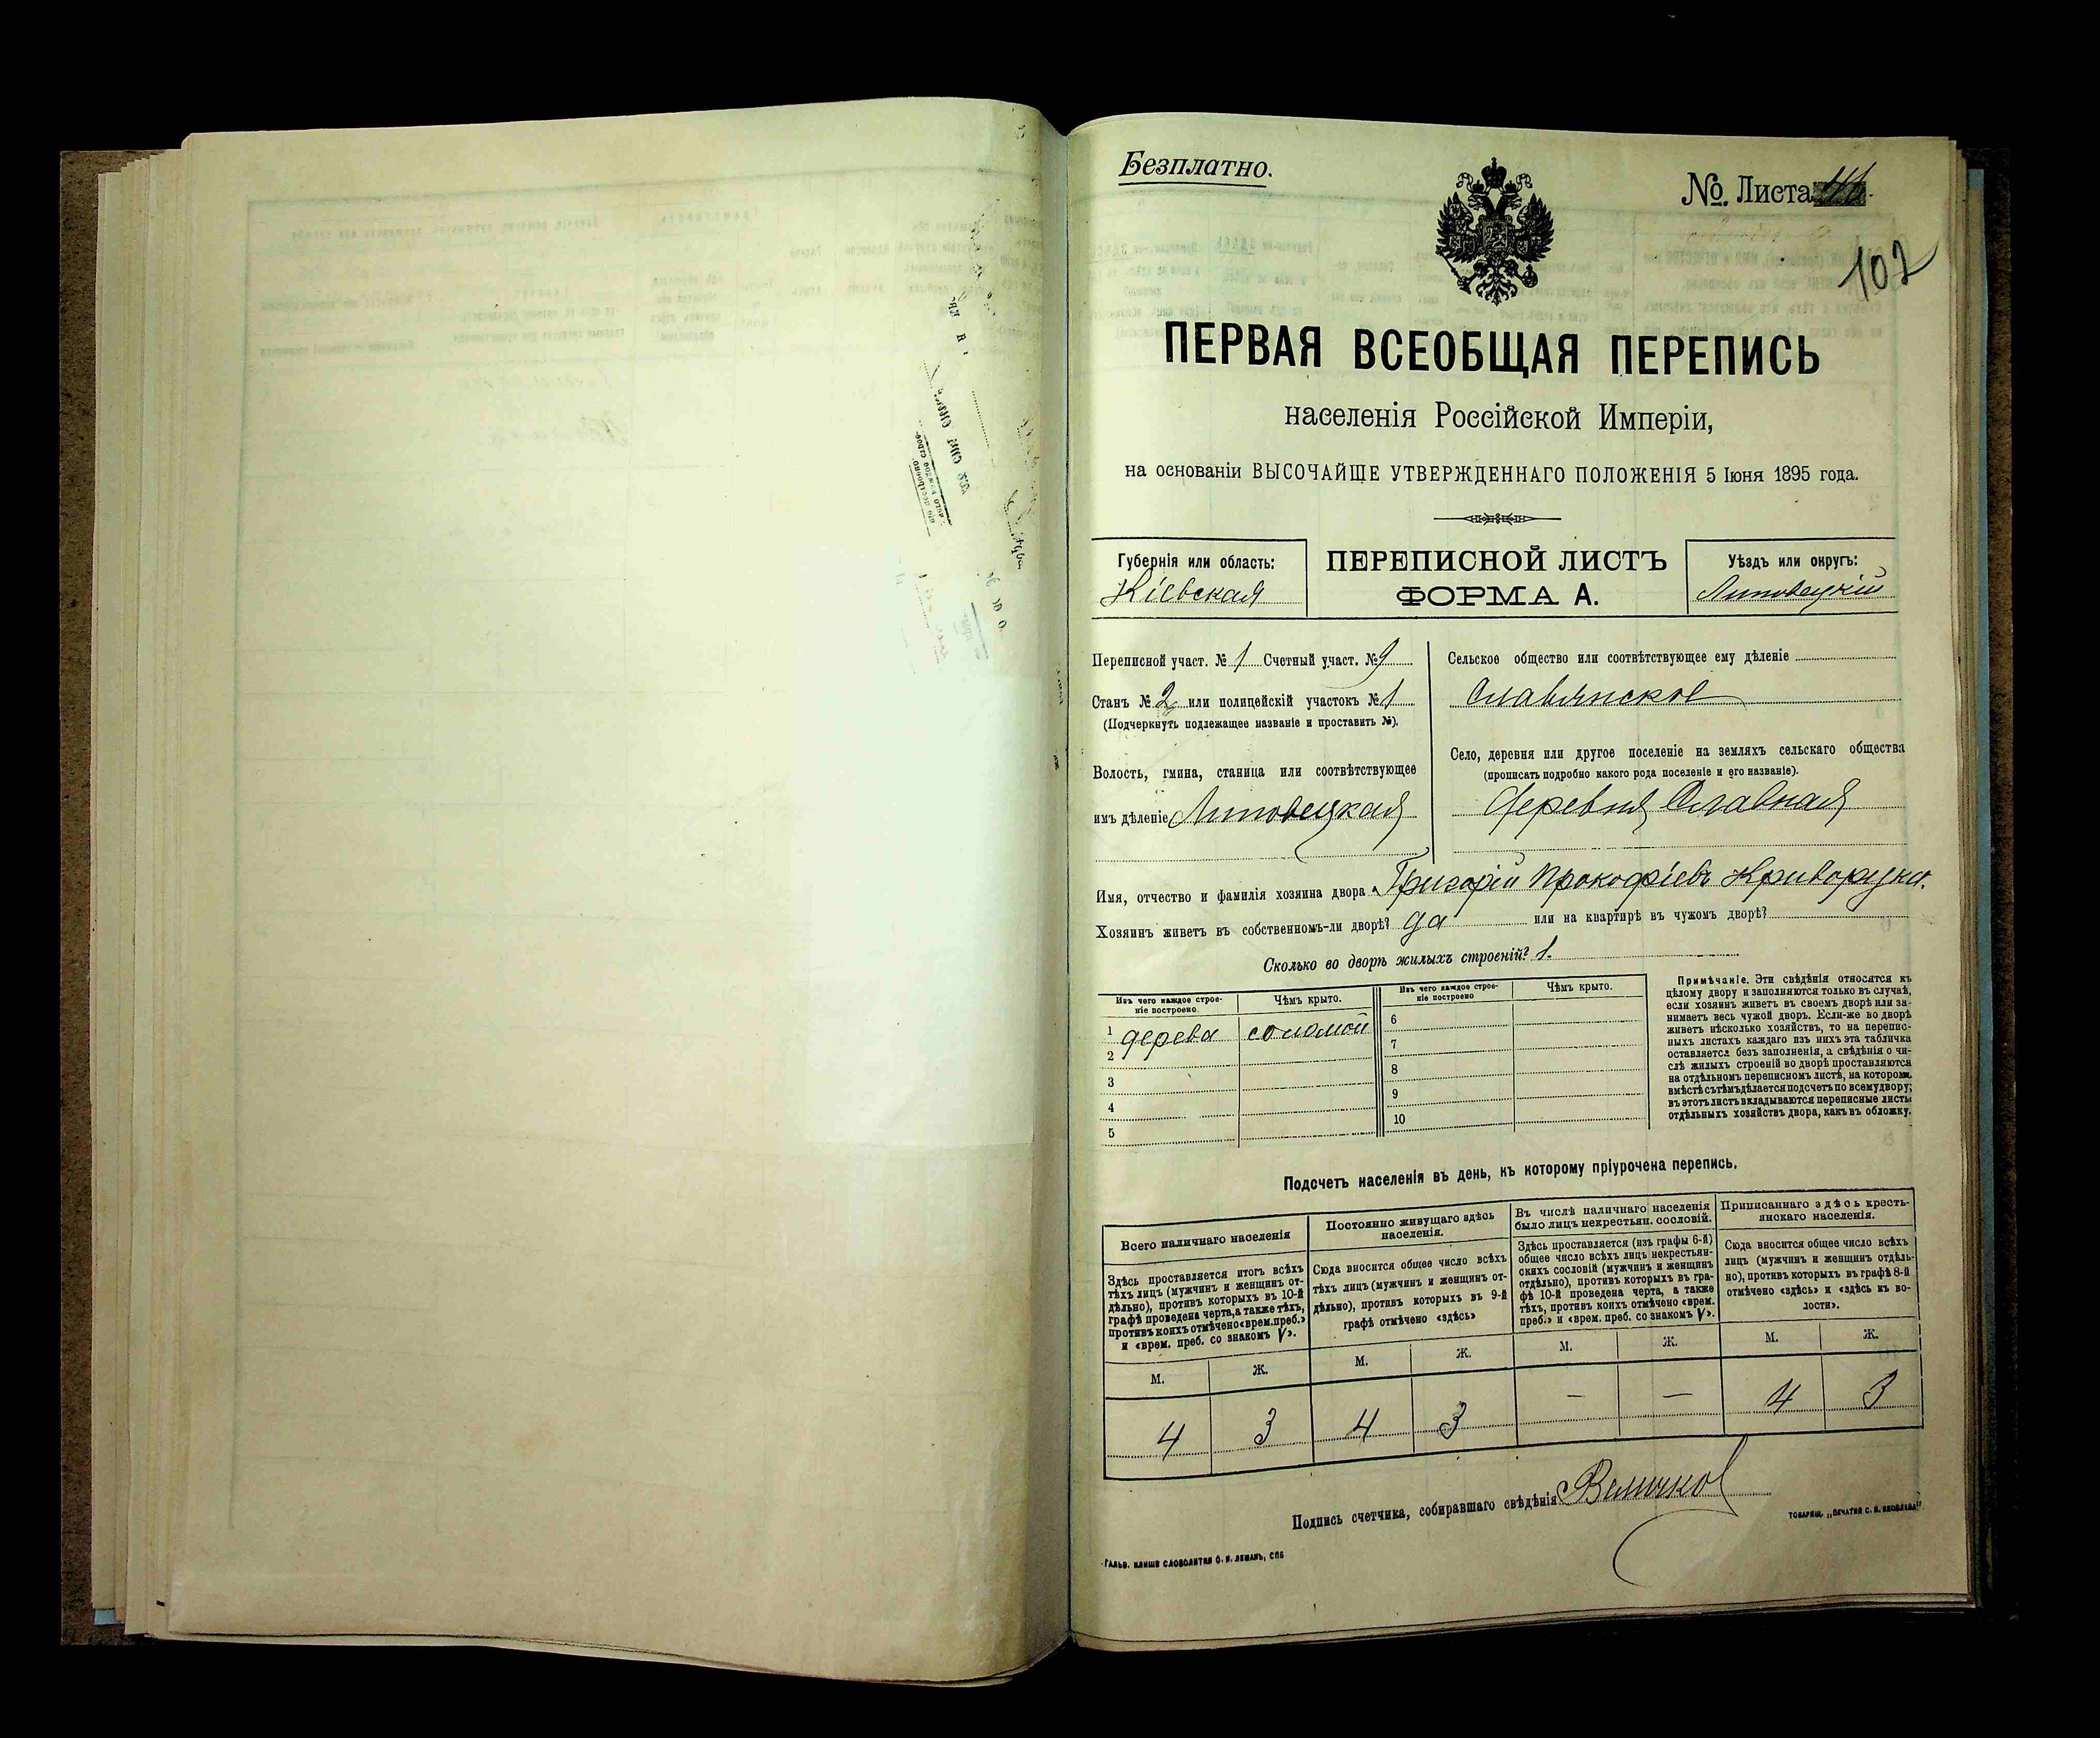 Безплатно.
№ Листа
102
ПЕРВАЯ ВСЕОБЩАЯ ПЕРЕПИСЬ
населенія Россійской Имперіи,
на основаніи ВЫСОЧАЙШЕ УТВЕРЖДЕННАГО ПОЛОЖЕНІЯ 5 Іюня 1895 года.
Губернія или область:
Кіевская
ПЕРЕПИСНОЙ ЛИСТЪ
ФОРМА А.
Уѣздъ или округъ:
Липовецкій
Переписной участ. № 1 Счетный участ. № 9
Станъ № 2 или полицейскій участокъ № 1
(Подчеркнуть подлежащее названіе и проставить №).
Волость, гмина, станица или соотвѣтствующее
имъ дѣленіе Липовецкая
Сельское общество или соотвѣтствующее ему дѣленіе
Славянское
Село, деревня или другое поселеніе на земляхъ сельскаго общества
(прописать подробно какого рода поселеніе и его названіе).
Деревня Славная
Имя, отчество и фамилія хозяина двора Григорій Прокофіевъ Криворука.
Хозяинъ живетъ въ собственномъ-ли дворѣ? да или на квартирѣ въ чужомъ дворѣ?
Сколько во дворѣ жилыхъ строеній? 1.
Изъ чего каждое строе-
ніе построено.
Чѣмъ крыто.
Изъ чего каждое строе-
ніе построено
Чѣмъ крыто.
1 дерева соломой
2
3
4
5
6
7
8
9
10
Примѣчаніе. Эти свѣдѣнія относятся къ
цѣлому двору и заполняются только въ случаѣ,
если хозяинъ живетъ въ своемъ дворѣ или за-
нимаетъ весь чужой дворъ. Если-же во дворѣ
живетъ нѣсколько хозяйствъ, то на перепис-
ныхъ листахъ каждаго изъ нихъ эта табличка
оставляется безъ заполненія, а свѣдѣнія о чи-
слѣ жилыхъ строеній во дворѣ проставляются
на отдѣльномъ переписномъ листѣ, на которомъ
вмѣстѣ съ тѣмъ дѣлается подсчетъ по всему двору;
въ этотъ листъ вкладываются переписные листы
отдѣльныхъ хозяйствъ двора, какъ въ обложку.
Подсчетъ населенія въ день, къ которому пріурочена перепись.
Всего наличнаго населенія
Здѣсь проставляется итогъ всѣхъ
тѣхъ лицъ (мужчинъ и женщинъ от-
дѣльно), противъ которыхъ въ 10-й
графѣ проведена черта, а также тѣхъ,
противъ коихъ отмѣчено «врем. преб.»
и «врем. преб. со знакомъ V».
Постоянно живущаго здѣсь
населенія.
Сюда вносится общее число всѣхъ
тѣхъ лицъ (мужчинъ и женщинъ от-
дѣльно), противъ которыхъ въ 9-й
графѣ отмѣчено «здѣсь»
Въ числѣ наличнаго населенія
было лицъ некрестьян. сословій.
Здѣсь проставляется (изъ графы 6-й)
общее число всѣхъ лицъ некрестьян-
скихъ сословій (мужчинъ и женщинъ
отдѣльно), противъ которыхъ въ гра-
фѣ 10-й проведена черта, а также
тѣхъ, противъ коихъ отмѣчено «врем.
преб.» и «врем. преб. со знакомъ V».
Приписаннаго здѣсь кресть-
янскаго населенія.
Сюда вносится общее число всѣхъ
лицъ (мужчинъ и женщинъ отдѣль-
но), противъ которыхъ въ графѣ 8-й
отмѣчено «здѣсь» и «здѣсь къ во-
лости».
М. Ж. М. Ж. М. Ж. М. Ж.
4 3 4 3 — — 4 3
Подпись счетчика, собиравшаго свѣдѣнія
Гальв. клише словолитни О. И. Леманъ, СПБ
Товарищ. „Печатня С. П. Яковлева"